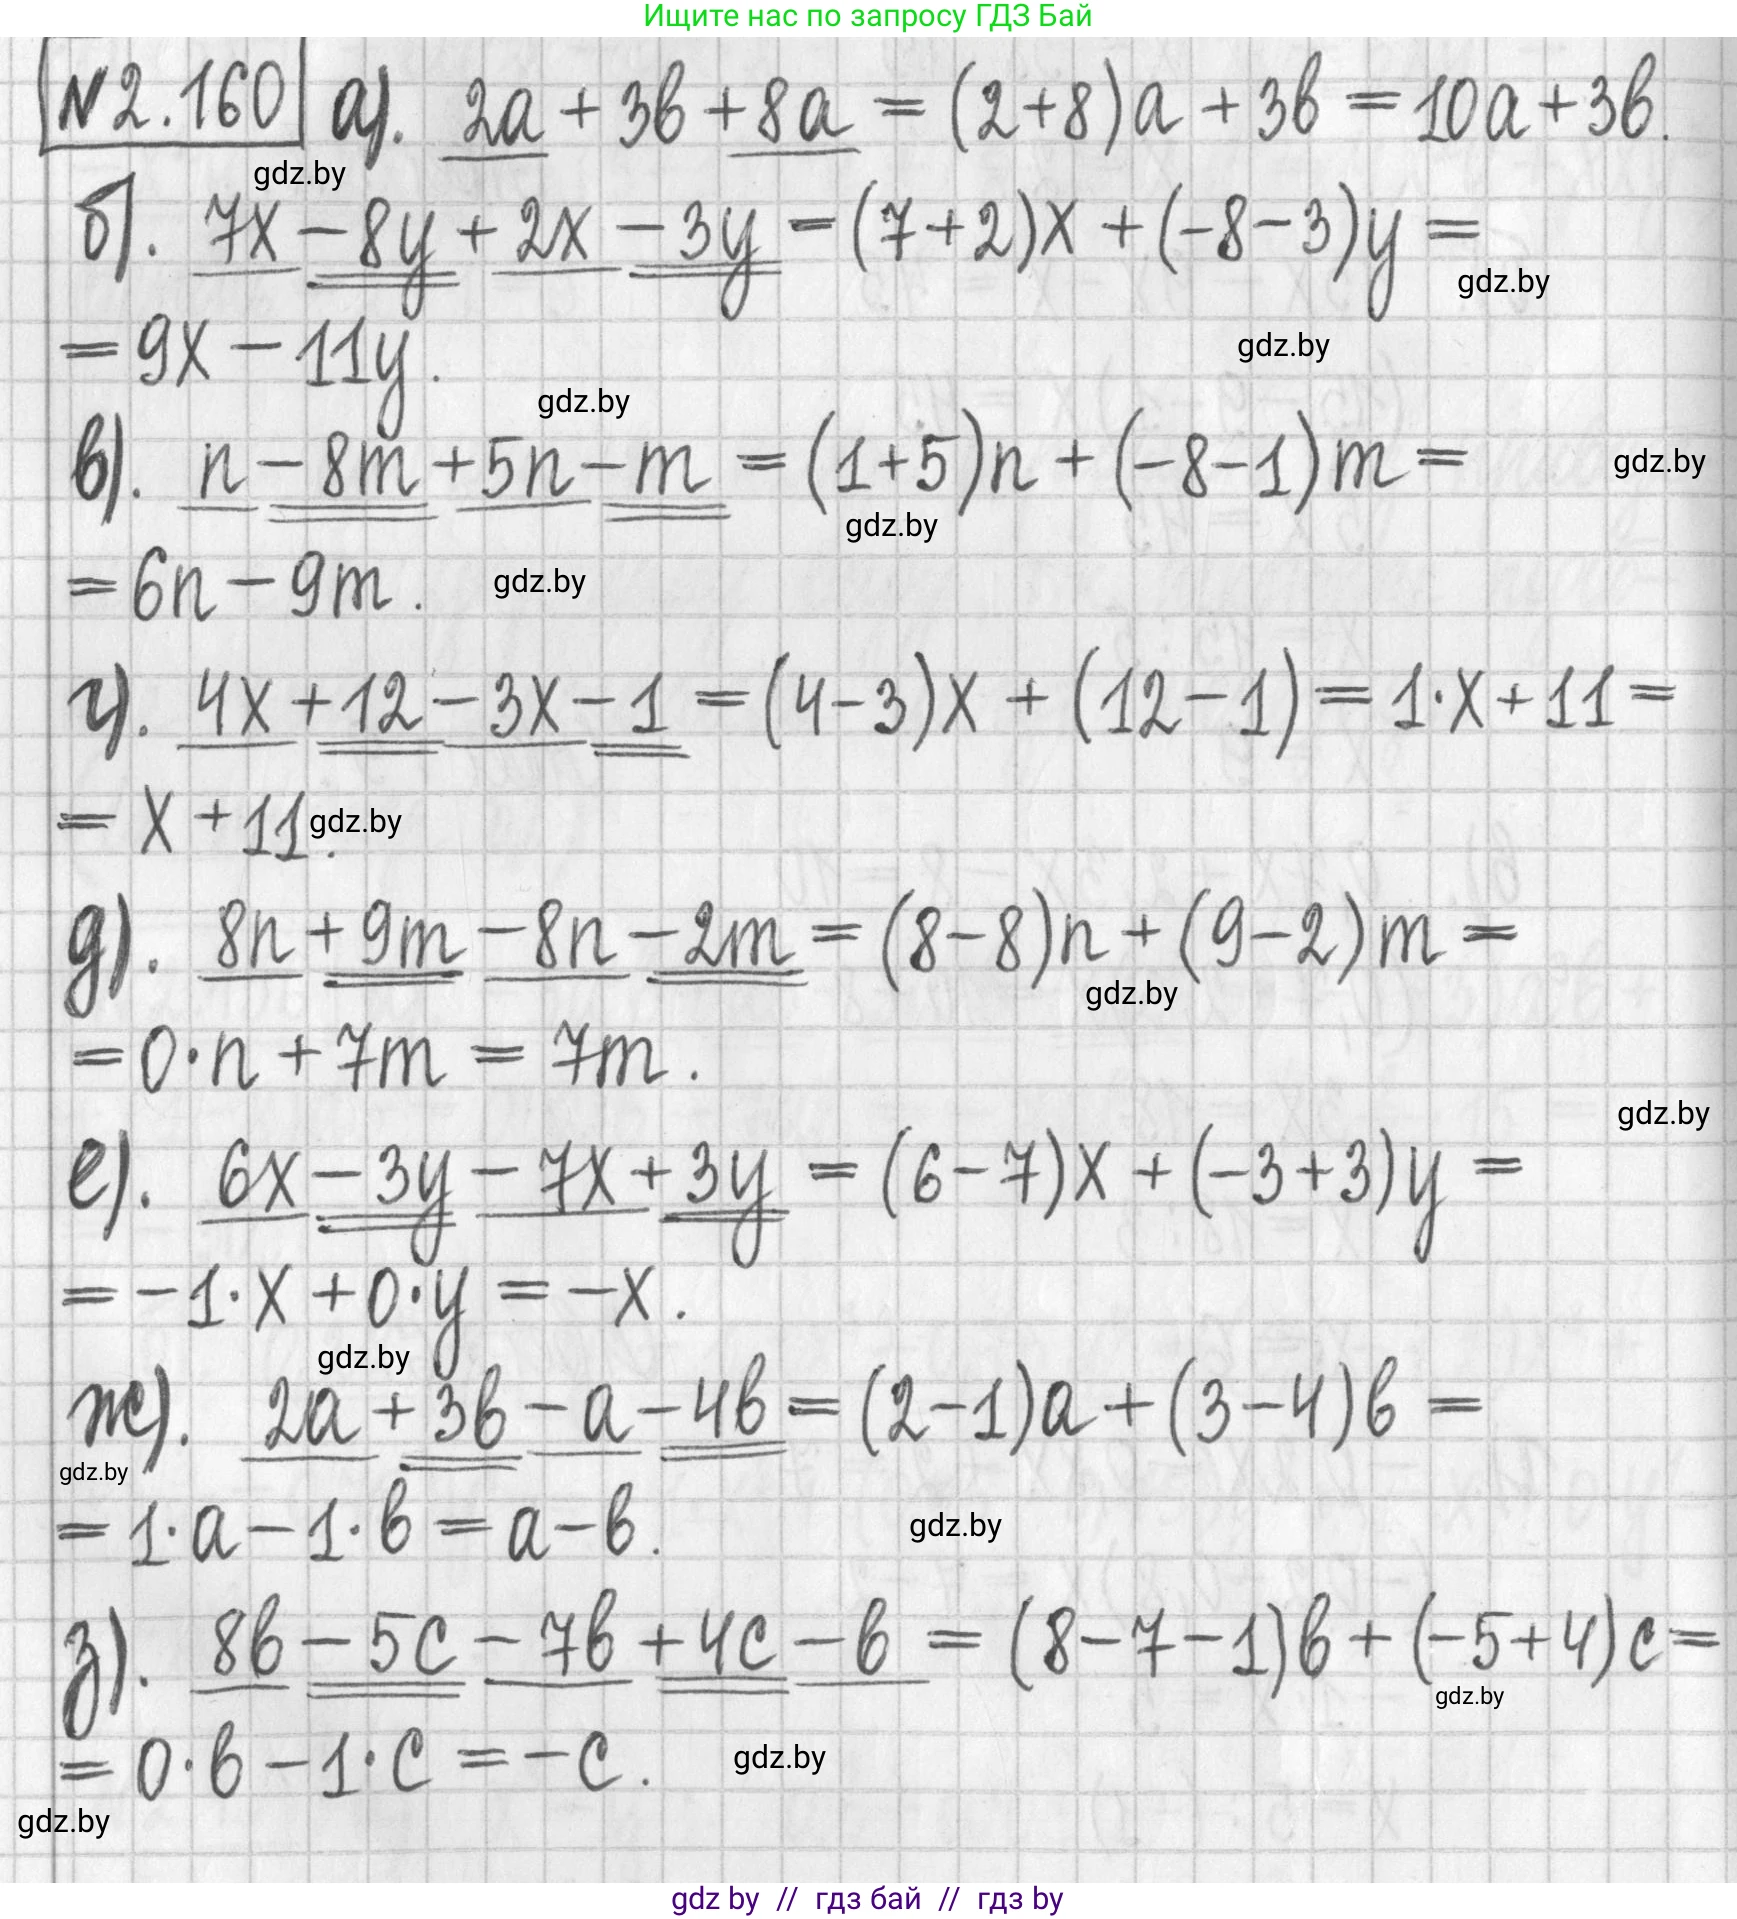 Ищите нас по запросу ГДЗ Бай
№2.160 а). 2a + 3b + 8a = (2+8)a + 3b = 10a + 3b.
gdz.by
б). 7x - 8y + 2x - 3y = (7+2)x + (-8-3)y =
gdz.by
= 9x - 11y.
gdz.by
gdz.by
в). n - 8m + 5n - m = (1+5)n + (-8-1)m =
gdz.by
gdz.by
= 6n - 9m.
gdz.by
г). 4x + 12 - 3x - 1 = (4-3)x + (12-1) = 1·x + 11 =
= x + 11.
gdz.by
д). 8n + 9m - 8n - 2m = (8-8)n + (9-2)m =
gdz.by
= 0·n + 7m = 7m.
gdz.by
е). 6x - 3y - 7x + 3y = (6-7)x + (-3+3)y =
= -1·x + 0·y = -x.
gdz.by
ж). 2a + 3b - a - 4b = (2-1)a + (3-4)b =
gdz.by
= 1·a - 1·b = a - b.
gdz.by
з). 8b - 5c - 7b + 4c - b = (8-7-1)b + (-5+4)c =
gdz.by
= 0·b - 1·c = -c.
gdz.by
gdz.by
gdz by // гдз бай // гдз by